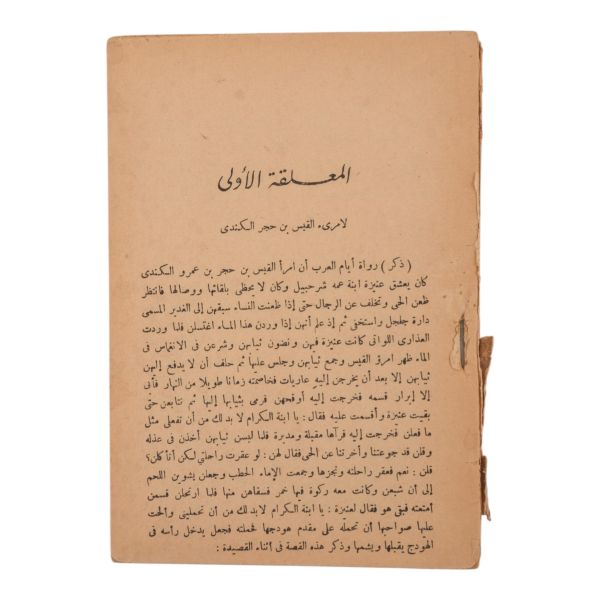 المعلقة الأولى
لامرىء القيس بن حجر الكندى
( ذكر ) رواة أيام العرب أن امرأ القيس بن حجر بن عمرو الكندى
كان يعشق عنيزة ابنة عمه شرحبيل وكان لا يحظى بلقائها ووصالها فانتظر
ظعن الحى وتخلف عن الرجال حتى إذا ظعنت النساء سبقهن إلى الغدير المسمى
دارة جلجل واستخفى ثم إذ علم أنهن إذا وردن هذا الماء اغتسلن فلما وردت
العذارى اللواتى كانت عنيزة فيهن ونضون ثيابهن وشرعن فى الانغماس فى
الماء ظهر امرؤ القيس وجمع ثيابهن وجلس عليها ثم حلف أن لا يدفع إليهن
ثيابهن إلا بعد أن يخرجن إليه عاريات فخاصمنه زمانا طويلا من النهار فأبى
إلا إبرار قسمه فخرجت إليه أوقحهن فرمى بثيابها إليها ثم تتابعن حتّى
بقيت عنيزة وأقسمت عليه فقال : يا ابنة الكرام لا بد لك من أن تفعلى مثل
ما فعلن فخرجت إليه فرآها مقبلة ومدبرة فلما لبسن ثيابهن أخذن فى عذله
وقلن قد جوعتنا وأخرتنا عن الحى فقال لهن : لو عقرت راحلتى لكن أتأكلن؟
قلن : نعم فعقر راحلته ونحرها وجمعت الإماء الحطب وجعلن يشوين اللحم
إلى أن شبعن وكانت معه ركوة فيها خمر فسقاهن منها فلما ارتحلن قسمن
أمتعته فبقى هو فقال لعنيزة : يا ابنة الكرام لا بد لك من أن تحملينى وألحت
عليها صواحبها أن تحمله على مقدم هودجها فحملته فجعل يدخل رأسه فى
الهودج يقبلها ويشمها وذكر هذه القصة فى أثناء القصيدة :